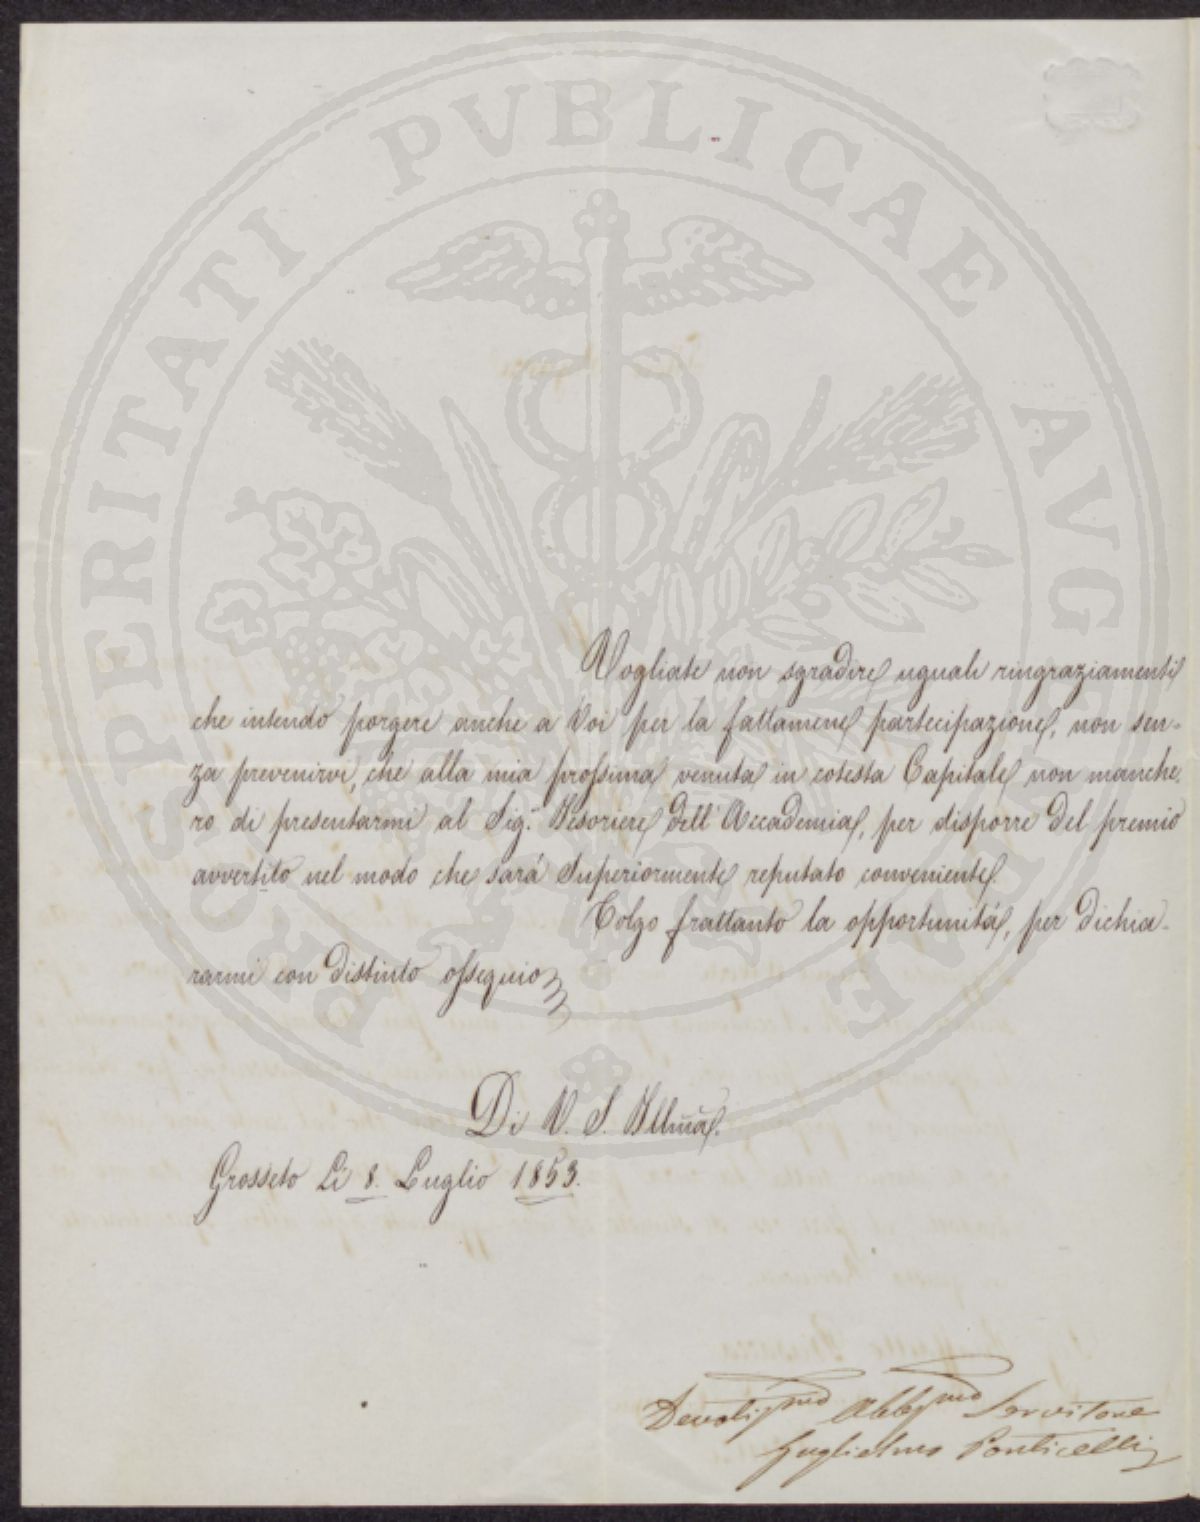 PROSPERITATI PVBLICAE AVGENDAE
Vogliate non sgradire uguali ringraziamenti
che intendo porgere anche a Voi per la fattamene partecipazione, non sen-
za prevenirvi, che alla mia prossima venuta in cotesta Capitale non manche
ro di presentarmi al Sig.r Tesoriere dell'Accademia, per disporre del premio
avvertito nel modo che sará Superiormente reputato conveniente.
Colgo frattanto la opportunitá, per dichia-
rarmi con distinto ossequio
Di V. S. Illma.
Grosseto Li 8. Luglio 1853.
Devotissmo Obblmo Servitore
Guglielmo Ponticelli